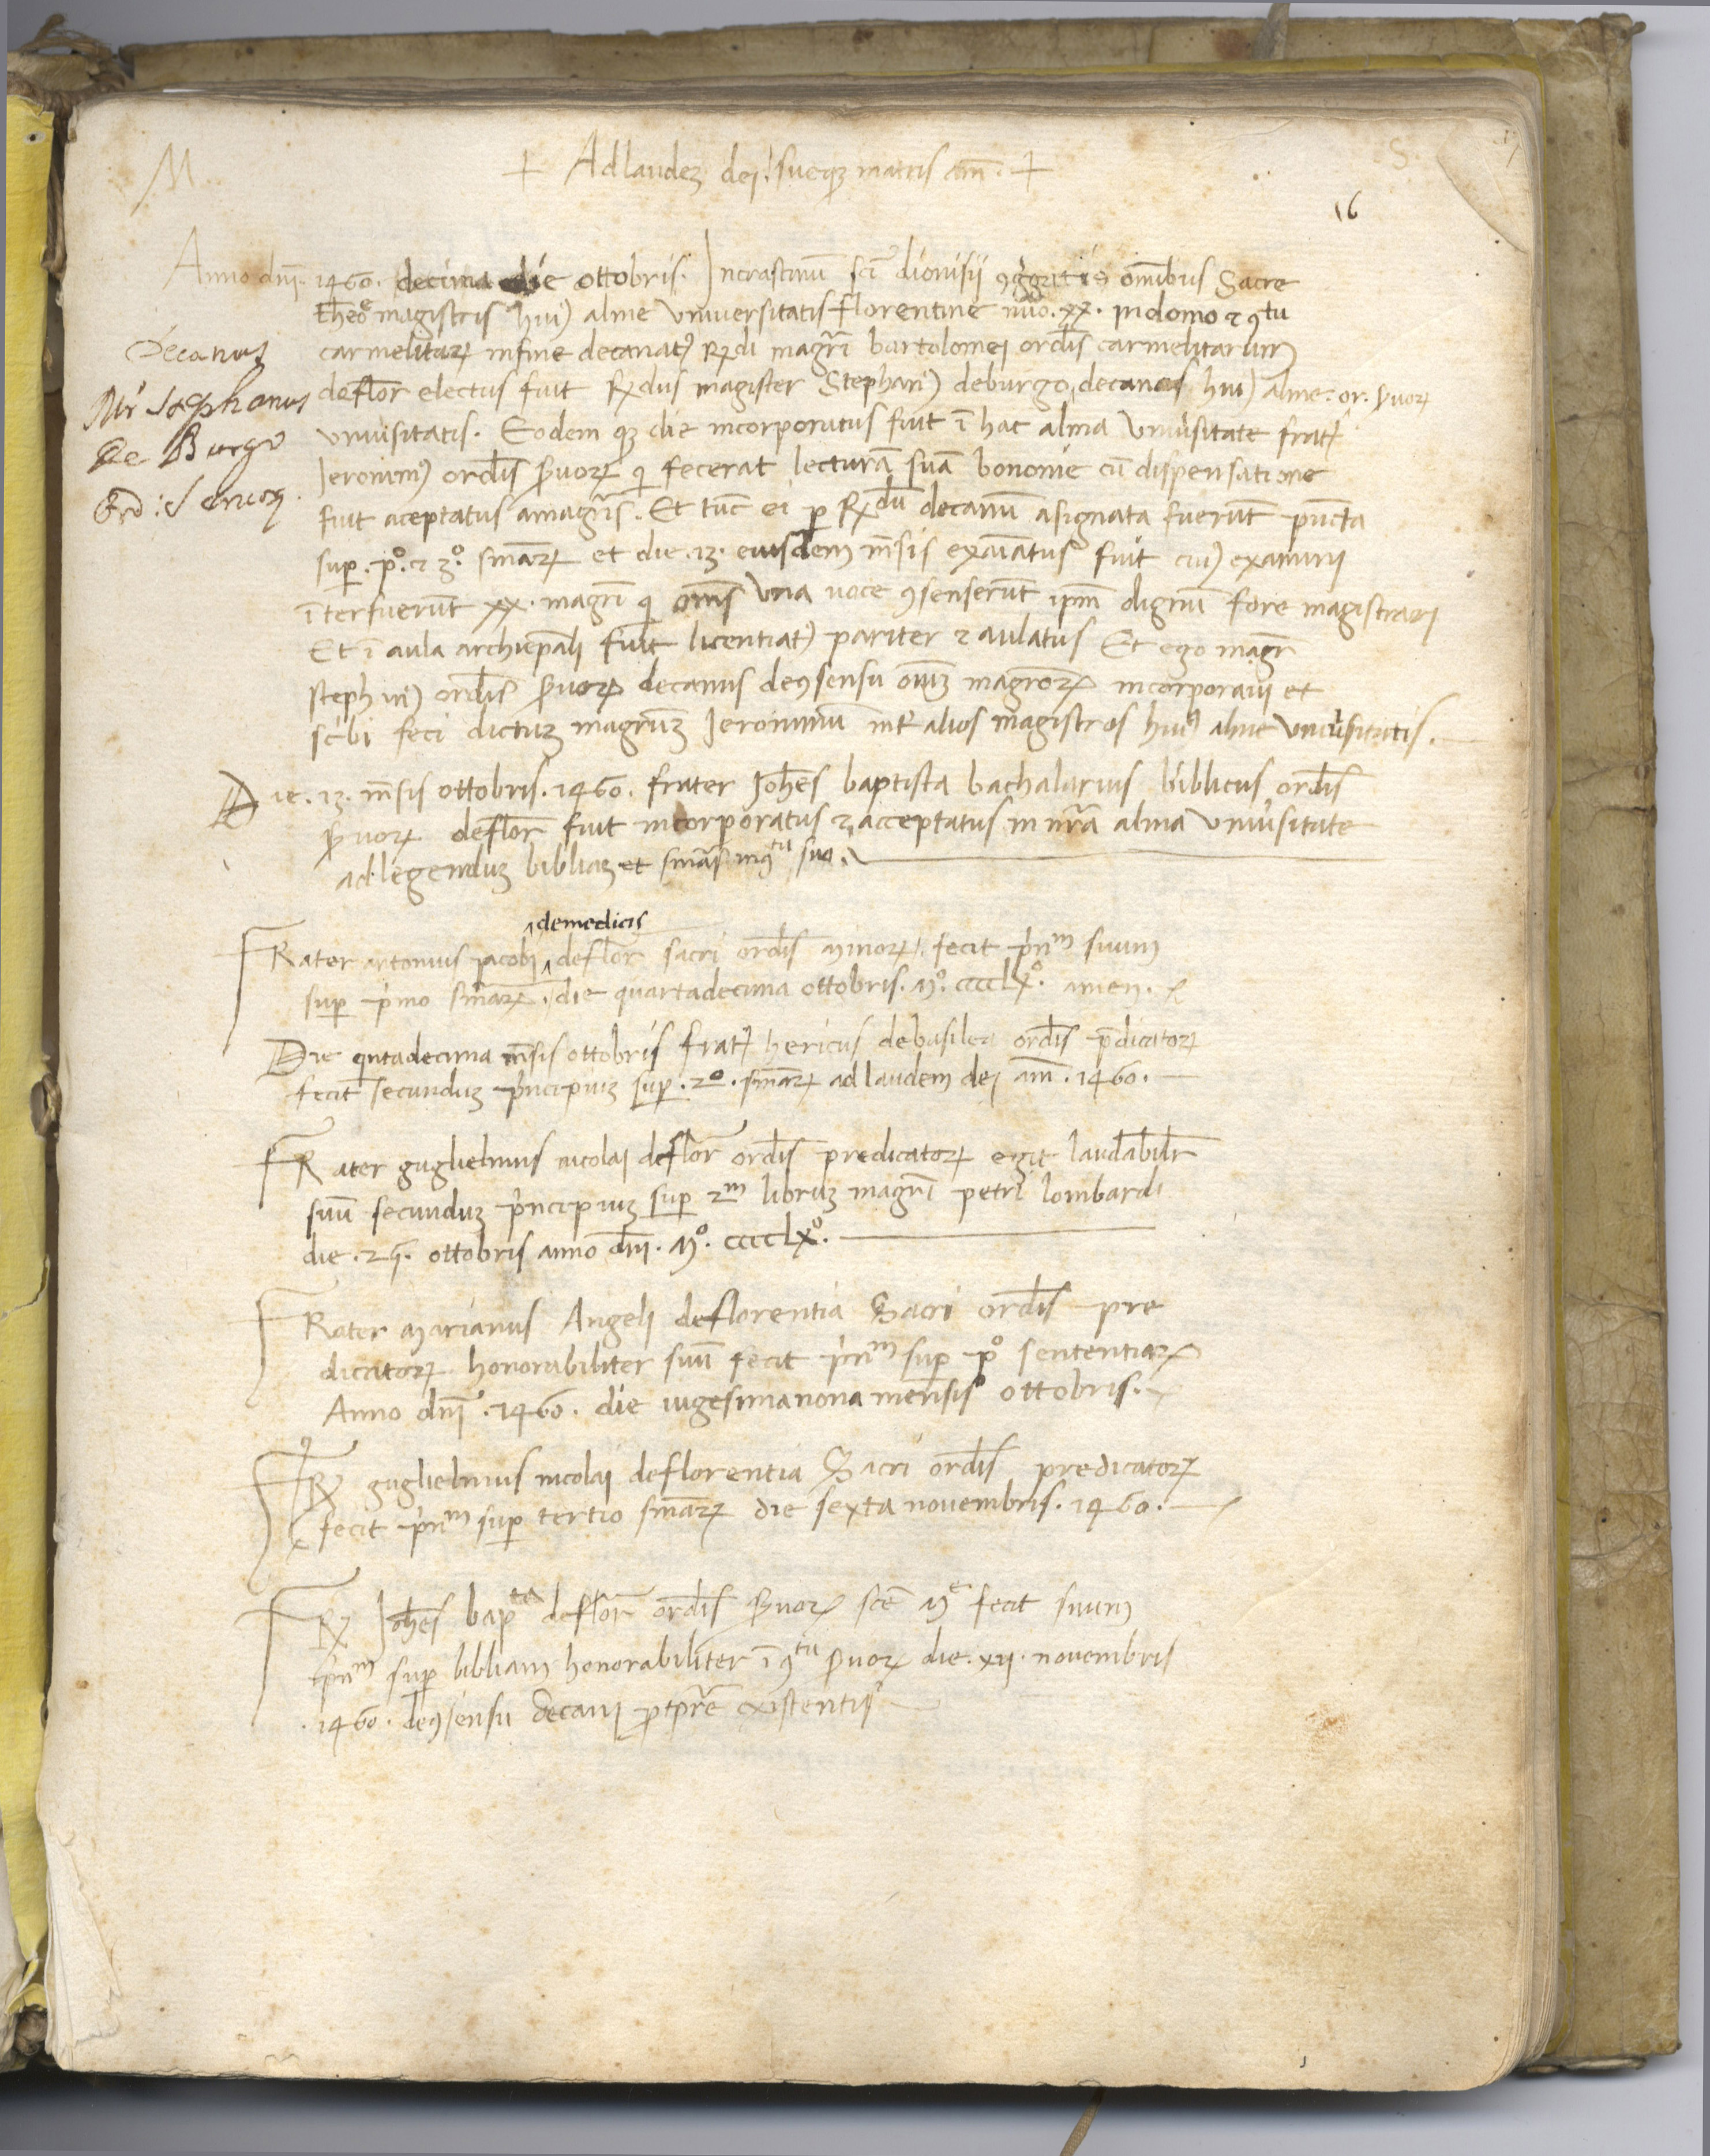 M
S.
+ Ad laudez dei sueqz matris am̄. +
16
Anno dn̄i. 1460. decima die ottobris. In crastinū sc̄i dionisii ꝯgregatis om̄ibus Sacre
theoe magistris huiꝰ alme universitatis florentine nūo. xx. in domo ⁊ ꝯtu
carmelitaꝝ in fine decanatꝰ Rdi magr̄i bartolomei ord̄is carmelitarum
de flor̄ electus fuit Rdus magister Stephanꝰ de burgo decanus huiꝰ alme or. ẜuoꝝ
univ̓sitatis. Eodem qz die incorporatus fuit ī hac alma univ̓sitate frat̓
Jeronimꝰ ord̄is ẜuoꝝ qi fecerat lecturā suā bononie cū dispensatione
fuit aceptatus a magr̄is. Et tūc ei ꝑ Rdū decanū asignata fuerūt pūcta
suꝑ. pº. ⁊ 3º. sm̄aꝝ et die. 13. eiusdem m̄sis exāīatus fuit cuiꝰ examini
īterfuerūt xx. magr̄i qi om̄s una uoce ꝯsenserūt ip̄m dignū fore magistrari
Et ī aula archiep̄ali fuit licentiatꝰ pariter ⁊ aulatus Et ego magr̄
stephanꝰ ord̄is ẜuoꝝ decanus de ꝯsensu om̄iuz magroꝝ incorporaui et
sc̓bi feci dictuz magruz Jeronimū int̓ alios magistros huiꝰ alme univ̓sitatis.
Decanus
Mr̄ Stephanus
de Burgo
Ord: Seruoꝝ.
Die. 13. m̄sis ottobris. 1460. frater Joh̄es baptista bachalarius biblicus ord̄is
ẜuoꝝ de flor̄ fuit incorporatus ⁊ acceptatus in nr̄a alma univ̓sitate
ad legenduz bibliaz et sm̄as in ꝯtu suo.
de medicis
FRater antonius jacobi de flor̄ sacri ord̄is minoꝝ. fecit p̓nm suum
suꝑ p̓mo sm̄aꝝ. die quartadecima ottobris. Mº. cccclxº. amen.
Die qntadecima m̄sis ottobris frat̓ hericus de basilea ord̄is p̄dicatoꝝ
fecit secunduz p̓ncipiuz suꝑ. 2º. sm̄aꝝ ad laudem dei am̄. 1460.
FRater guglielmus nicolai de flor̄ ord̄is predicatoꝝ egit laudabilr̄
suū secunduz p̓ncipiuz suꝑ 2m libruz magr̄i petri lombardi
die. 25. ottobris anno dn̄i. Mº. cccclxº.
FRater Marianus Angeli de florentia Sacri ord̄is pre
dicatoꝝ honorabiliter suū fecit p̓nm suꝑ pº sententiaꝝ
Anno dn̄i. 1460. die uigesimanona mensis ottobris.
FR guglielmus nicolai de florentia Sacri ord̄is predicatoꝝ
fecit p̓nm suꝑ tertio sm̄aꝝ die sexta novembris. 1460.
FR Joh̄es bapta de flor̄ ord̄is ẜuoꝝ sc̄e Me fecit suum
p̓nm suꝑ bibliam honorabiliter ī ꝯtu ẜuoꝝ die. xii. novembris
. 1460. de ꝯsensu decani ꝓ tpr̄e existentis